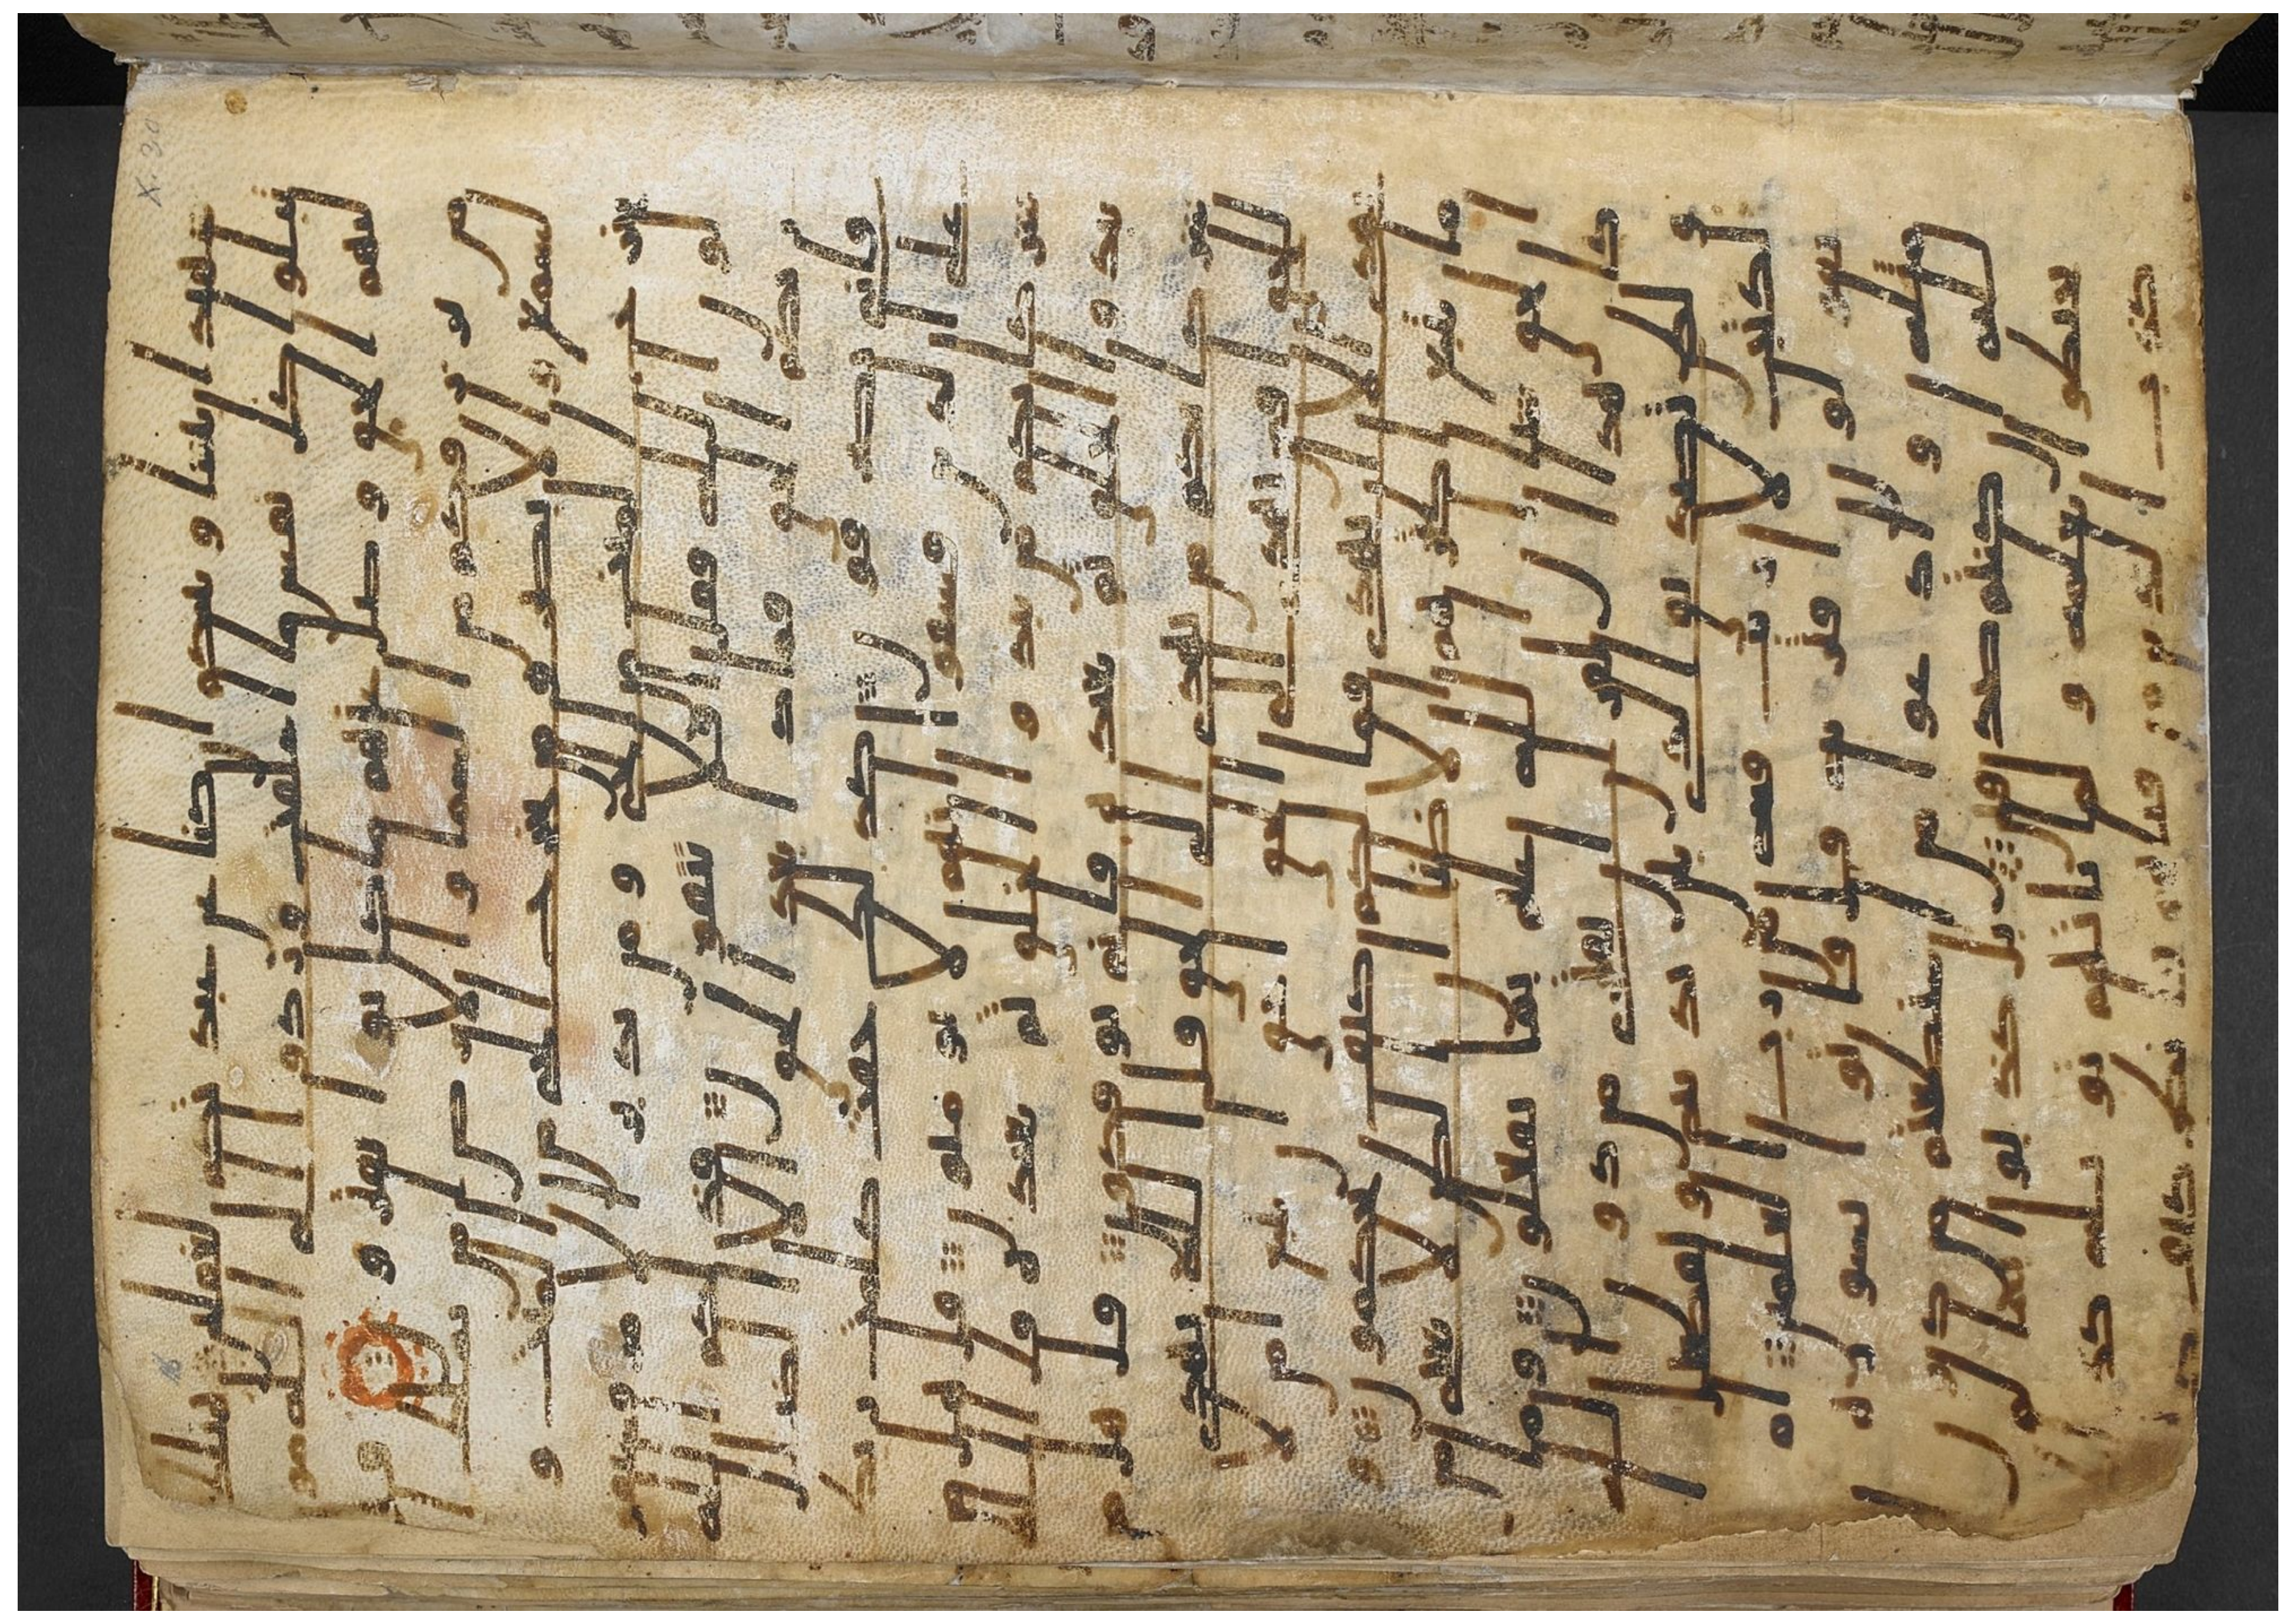 شهيدا بيننا وبينكم ان كنا عن عبدتكم لغفلين هنلك
تبلوا كل نفس ما اسلفت وردوا الى الله مو
ليهم الحق وضل عنهم ما كانوا يفترون قل م
ن يرزقكم من السما والارض امن يملك ا
لسمع والابصر ومن يخرج الحى من الميت و
يخرج الميت من الحى ومن يدبر الامر فسيقو
لون الله فقل افلا تتقون فذلكم الله
ربكم الحق فماذا بعد الحق الا الضلل
فانى تصرفون كذلك حقت كلمت ربك
على الذين فسقوا انهم لا يومنون قل هل
من شركائكم من يبدوا الخلق ثم يعيده قل ال
له يبدوا الخلق ثم يعيده فانى توفكون قل هل م
ن شركائكم من يهدى الى الحق قل الله يهدى
للحق افمن يهدى الى الحق احق ان يتبع امن لا
يهدى الا ان يهدى فما لكم كيف تحكمون و
ما يتبع اكثرهم الا ظنا ان الظن لا يغنى م
ن الحق شيا ان الله عليم بما يفعلون وما
كان هذا القران ان يفترى من دون الله
ولكن تصديق الذى بين يديه وتفصيل ا
لكتب لا ريب فيه من رب العلمين ام
يقولون افتريه قل فاتوا بسوره
مثله وادعوا من استطعتم من دون ا
لله ان كنتم صدقين بل كذبوا بما ل
م يحيطوا بعلمه ولما ياتهم تاويله كذ
لك كذب الذين من قبلهم فانظر كيف كان
X. 30